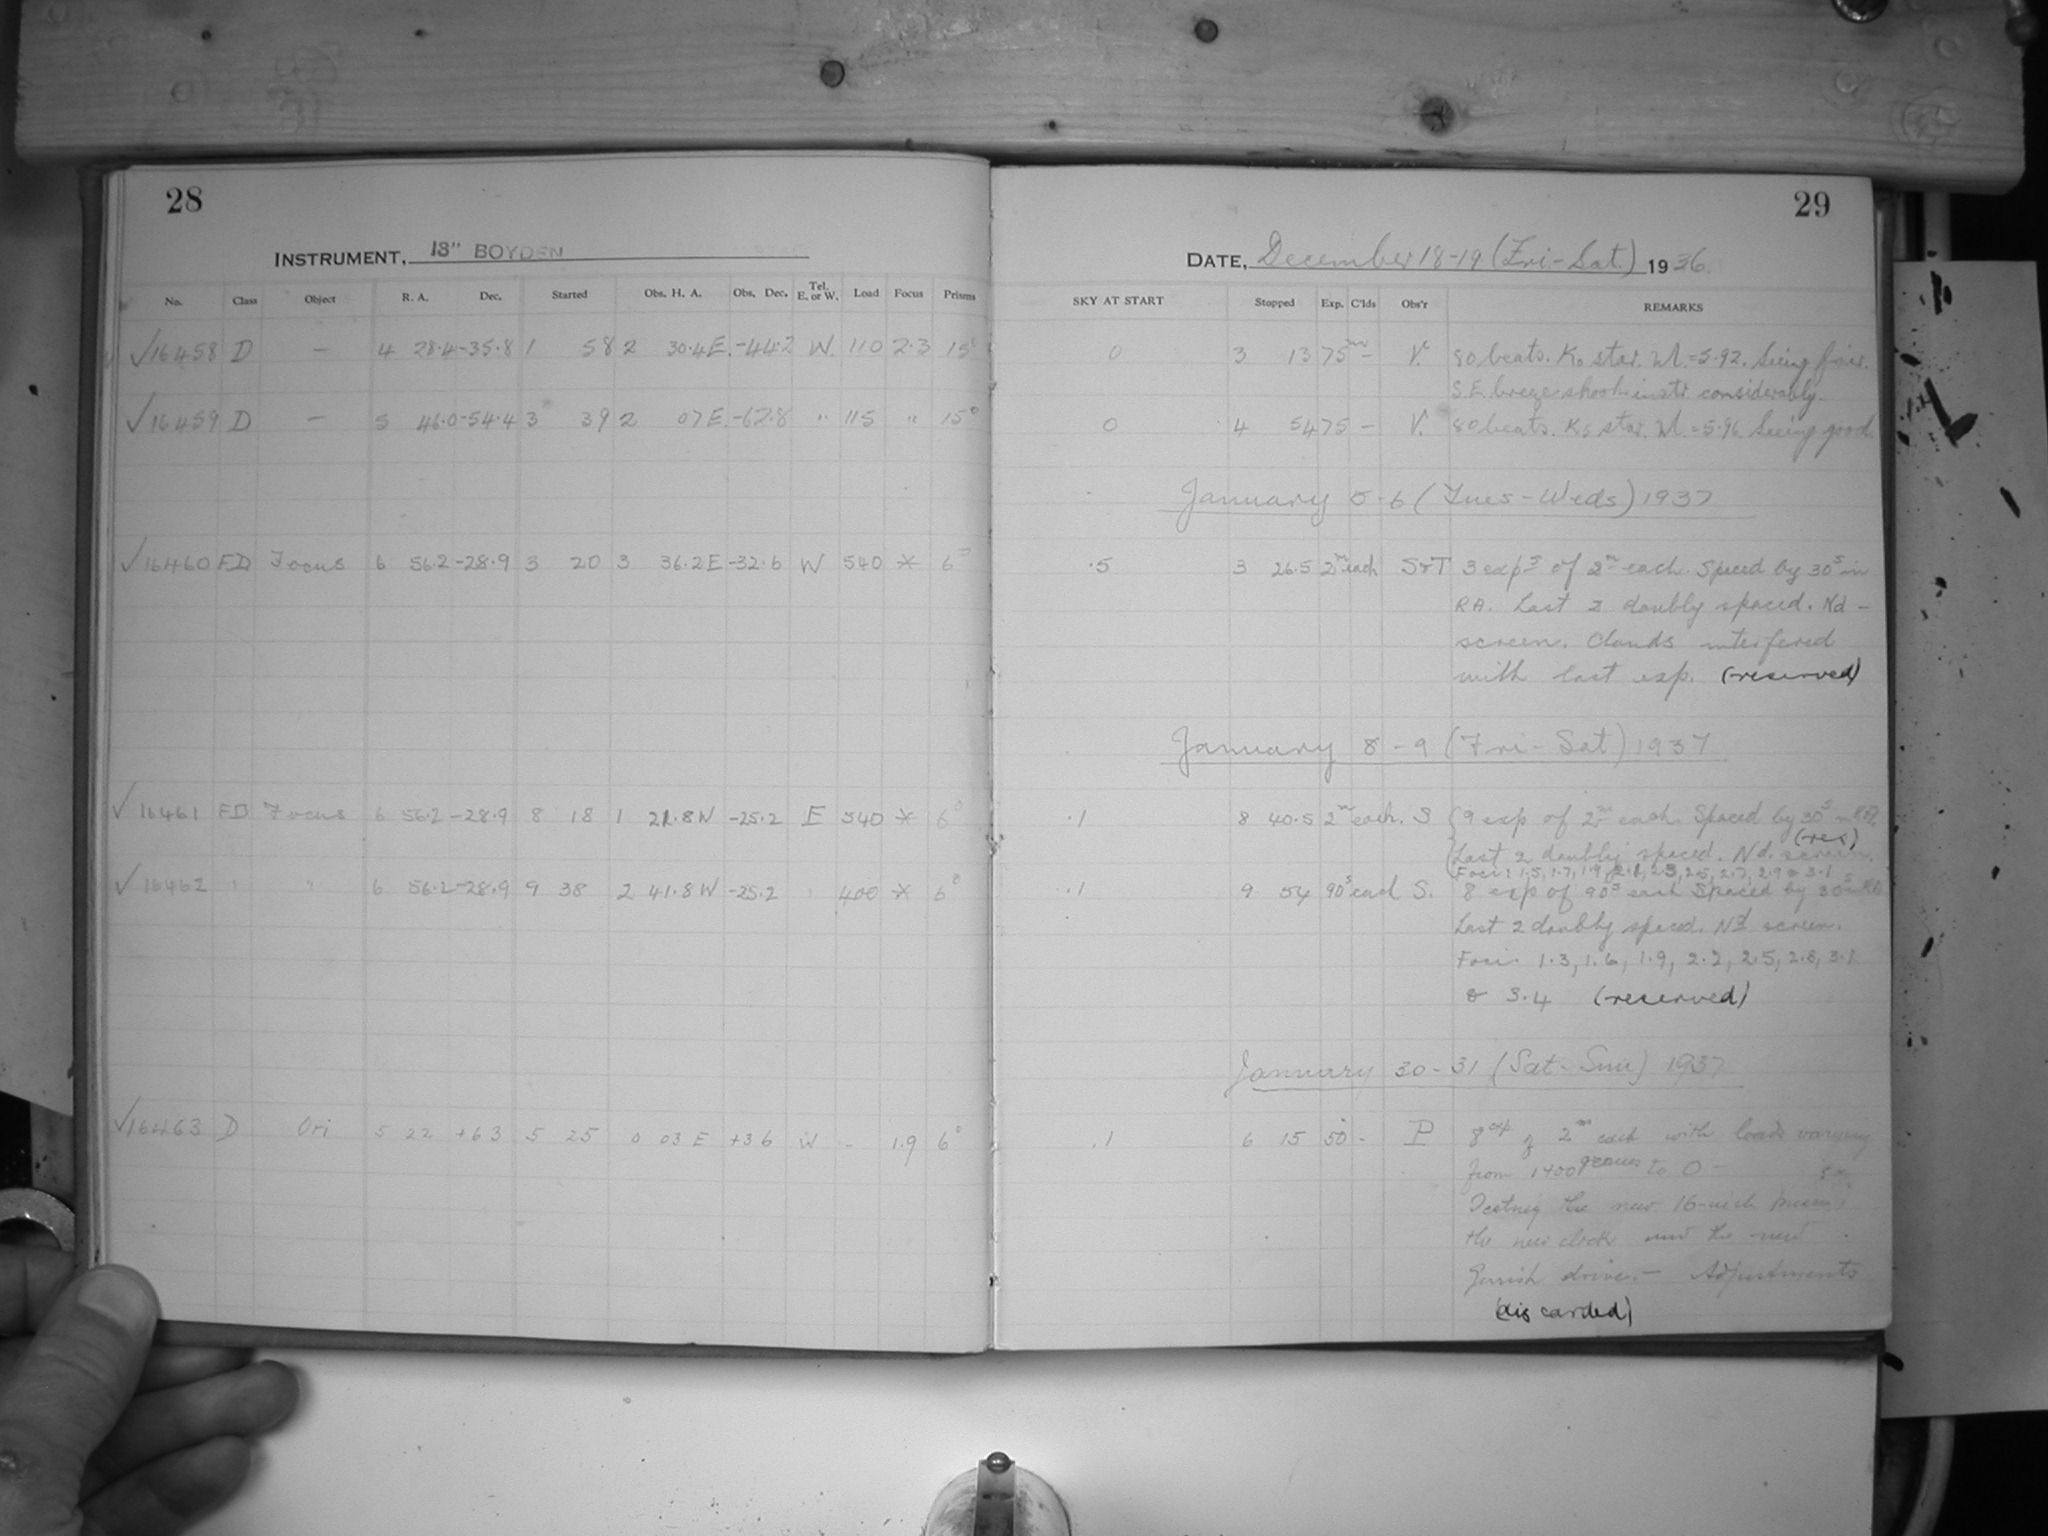 28
29
INSTRUMENT, 13" BOYDEN
DATE, December 18-19 (Fri.-Sat.) 1936.
No. Class Object R. A. Dec. Started Obs. H. A. Obs. Dec. Tel. E. or W. Load Focus Prisms
SKY AT START Stopped Exp. C'lds Obs'r REMARKS
✓16458 D — 4 28.4 -35.8 1 58 2 30.4 E. -44.2 W. 110 2.3 15° 0 3 13 75m — V. 80 beats. K0 star. Wt.=5.92. Seeing fair.
S.E. breeze shook instr. considerably.
✓16459 D — 5 46.0 -54.4 3 39 2 07 E. -62.8 " 115 " 15° 0 4 54 75 — V. 80 beats. K5 star. Wt.=5.96. Seeing good.
January 5-6 (Tues-Weds) 1937
✓16460 FD Focus 6 56.2 -28.9 3 20 3 36.2 E -32.6 W 540 * 6° .5 3 26.5 2m each S&T 3 exps of 2m each. Spaced by 30s in
RA. Last 2 doubly spaced. Nd-
screen. Clouds interfered
with last exp. (reserved)
January 8-9 (Fri-Sat) 1937
✓16461 FD Focus 6 56.2 -28.9 8 18 1 21.8 W -25.2 E 540 * 6° .1 8 40.5 2m each. S 9 exp of 2m each. Spaced by 30s in RA.
(res)
Last 2 doubly spaced. Nd. screen.
Foci: 1.5, 1.7, 1.9, 2.1, 2.3, 2.5, 2.7, 2.9 & 3.1
✓16462 " " 6 56.2 -28.9 9 38 2 41.8 W -25.2 " 400 * 6° .1 9 54 90s each S. 8 exp of 90s each Spaced by 30s in RA
Last 2 doubly spaced. Nd screen.
Foci. 1.3, 1.6, 1.9, 2.2, 2.5, 2.8, 3.1
& 3.4 (reserved)
January 30-31 (Sat-Sun) 1937
✓16463 D Ori 5 22 +63 5 25 0 03 E +36 W - 1.9 6° .1 6 15 50 - P 8 exp of 2m each with loads varying
from 1400 grams to 0 —
Testing the new 16-inch
the new clock and the new
Gerrish drive. — Adjustments
(discarded)